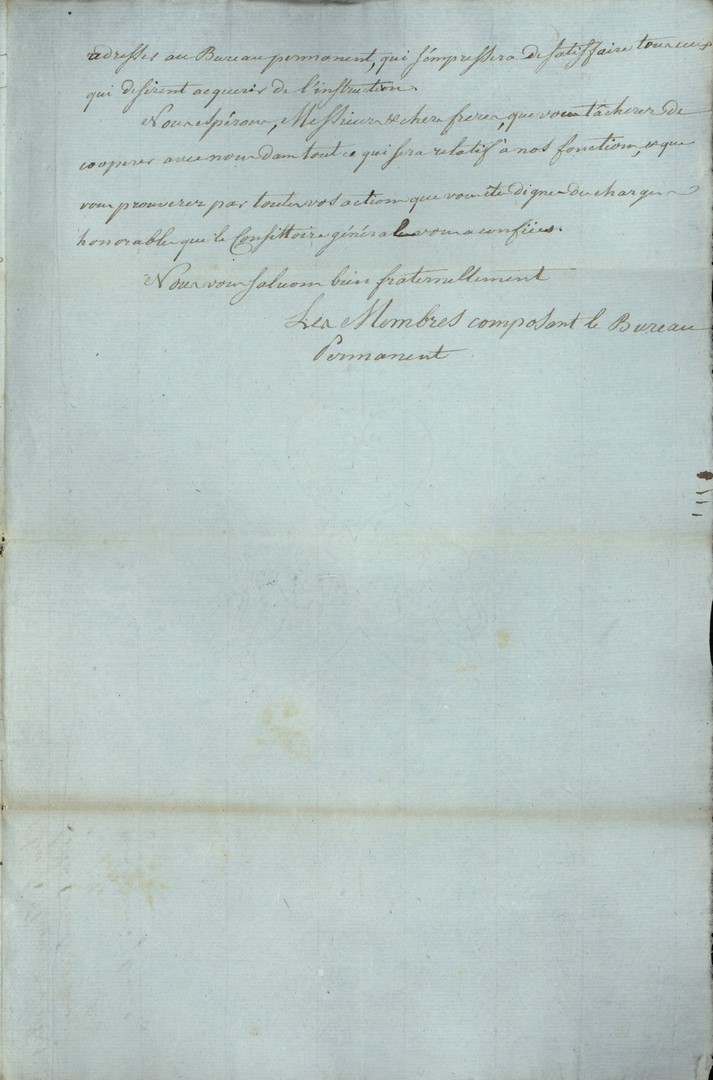 adresser au Bureau permanent, qui s'empressera de satisfaire tous ceux
qui desirent acquerir de l'instruction.
Nous espérons, Messieurs & chers freres, que vous tâcherez de
cooperer avec nous dans tout ce qui sera relatif à nos fonctions, & que
vous prouverez par toutes vos actions que vous ête dignes des charges
honorables que le Consistoire générale vous a confiées.
Nous vous saluons bien fraternellement
Les Membres composant le Bureau
Permanent